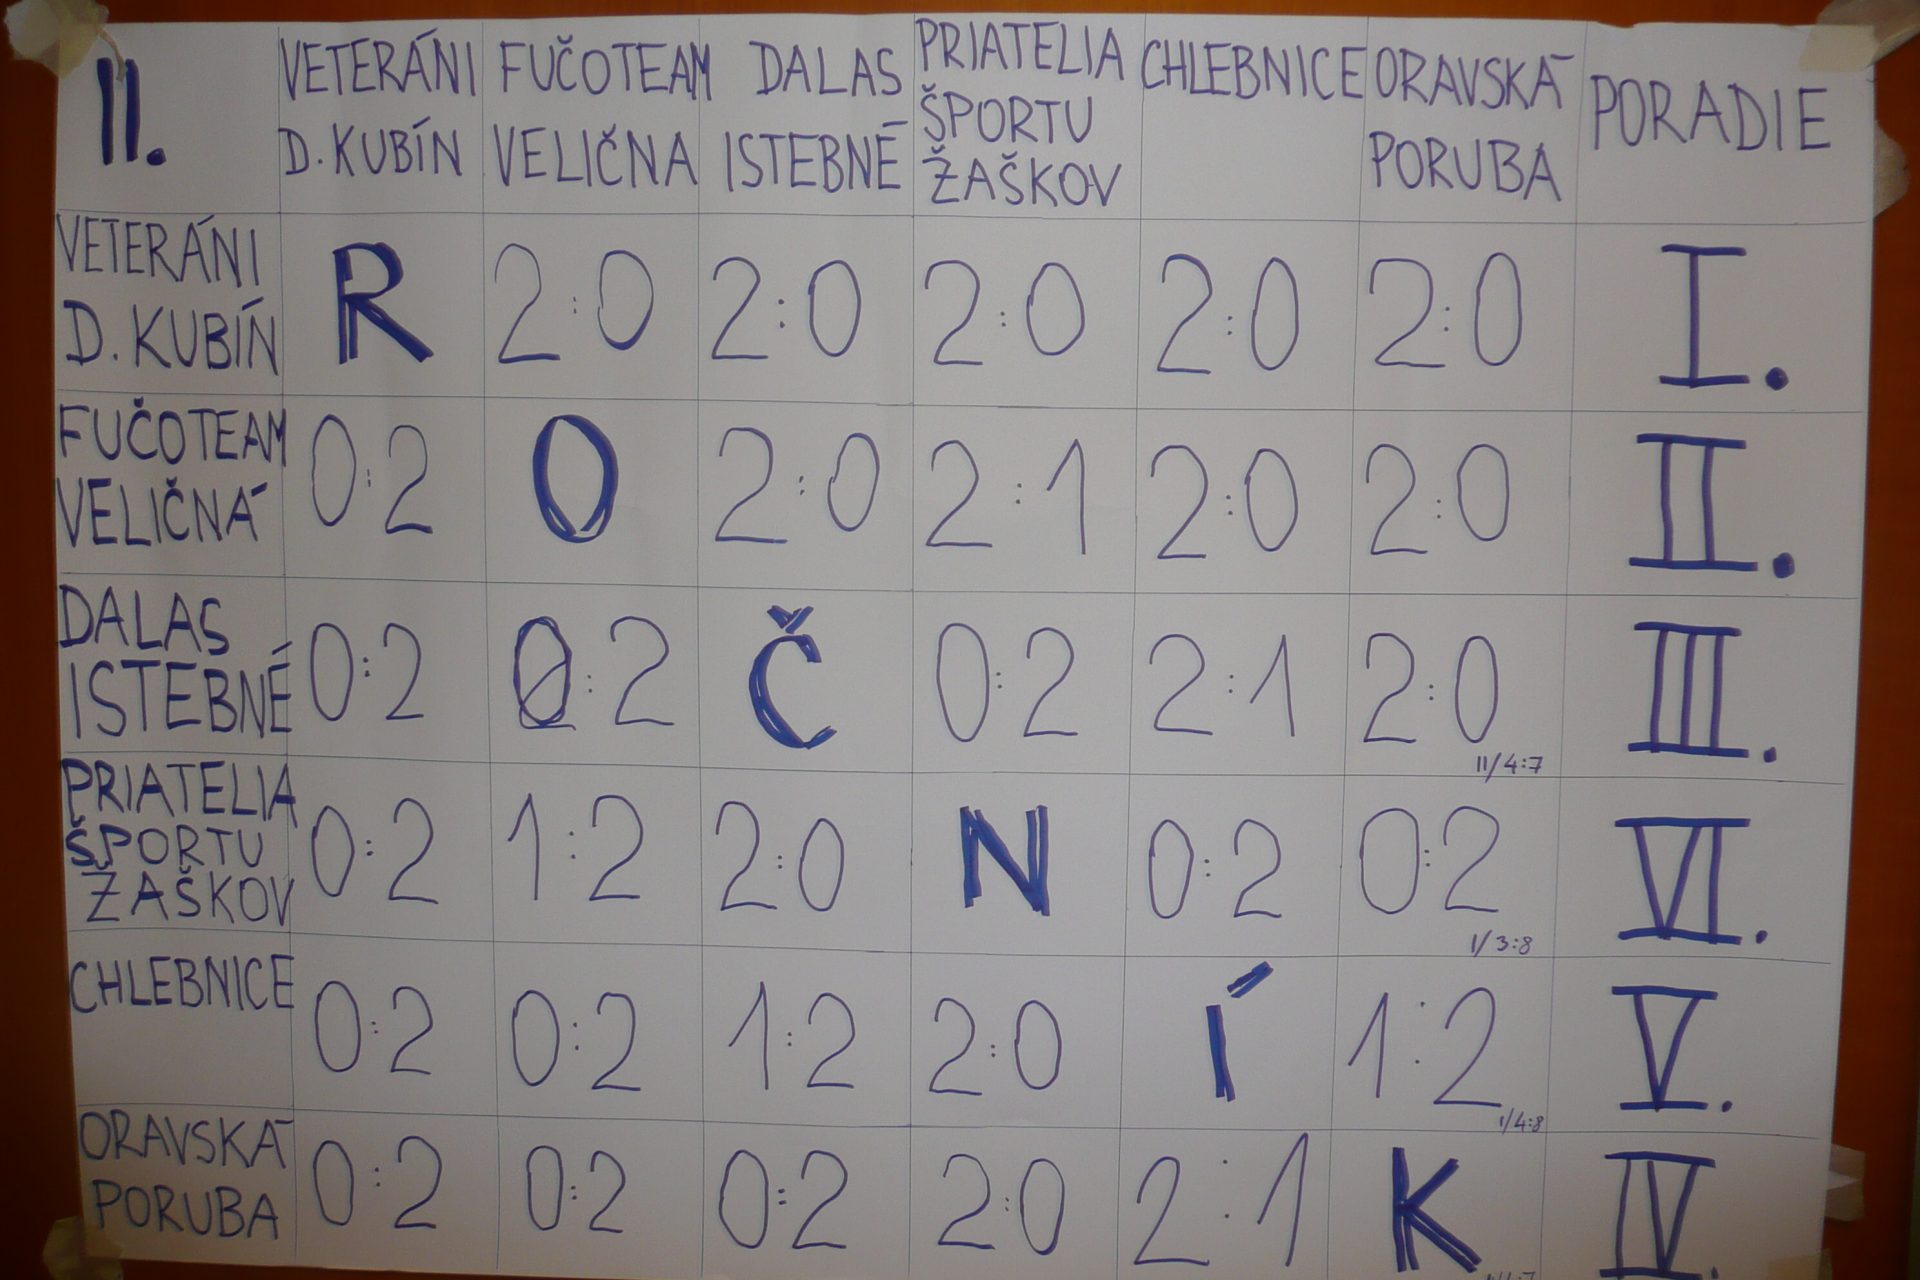 II. VETERÁNI D. KUBÍN FUČOTEAM VELIČNA DALAS ISTEBNÉ PRIATELIA ŠPORTU ŽAŠKOV CHLEBNICE ORAVSKÁ PORUBA PORADIE
VETERÁNI D. KUBÍN R 2:0 2:0 2:0 2:0 2:0 I.
FUČOTEAM VELIČNÁ 0:2 O 2:0 2:1 2:0 2:0 II.
DALAS ISTEBNÉ 0:2 0:2 Č 0:2 2:1 2:0 II/4:7 III.
PRIATELIA ŠPORTU ŽAŠKOV 0:2 1:2 2:0 N 0:2 0:2 I/3:8 VI.
CHLEBNICE 0:2 0:2 1:2 2:0 Í 1:2 I/4:8 V.
ORAVSKÁ PORUBA 0:2 0:2 0:2 2:0 2:1 K IV.